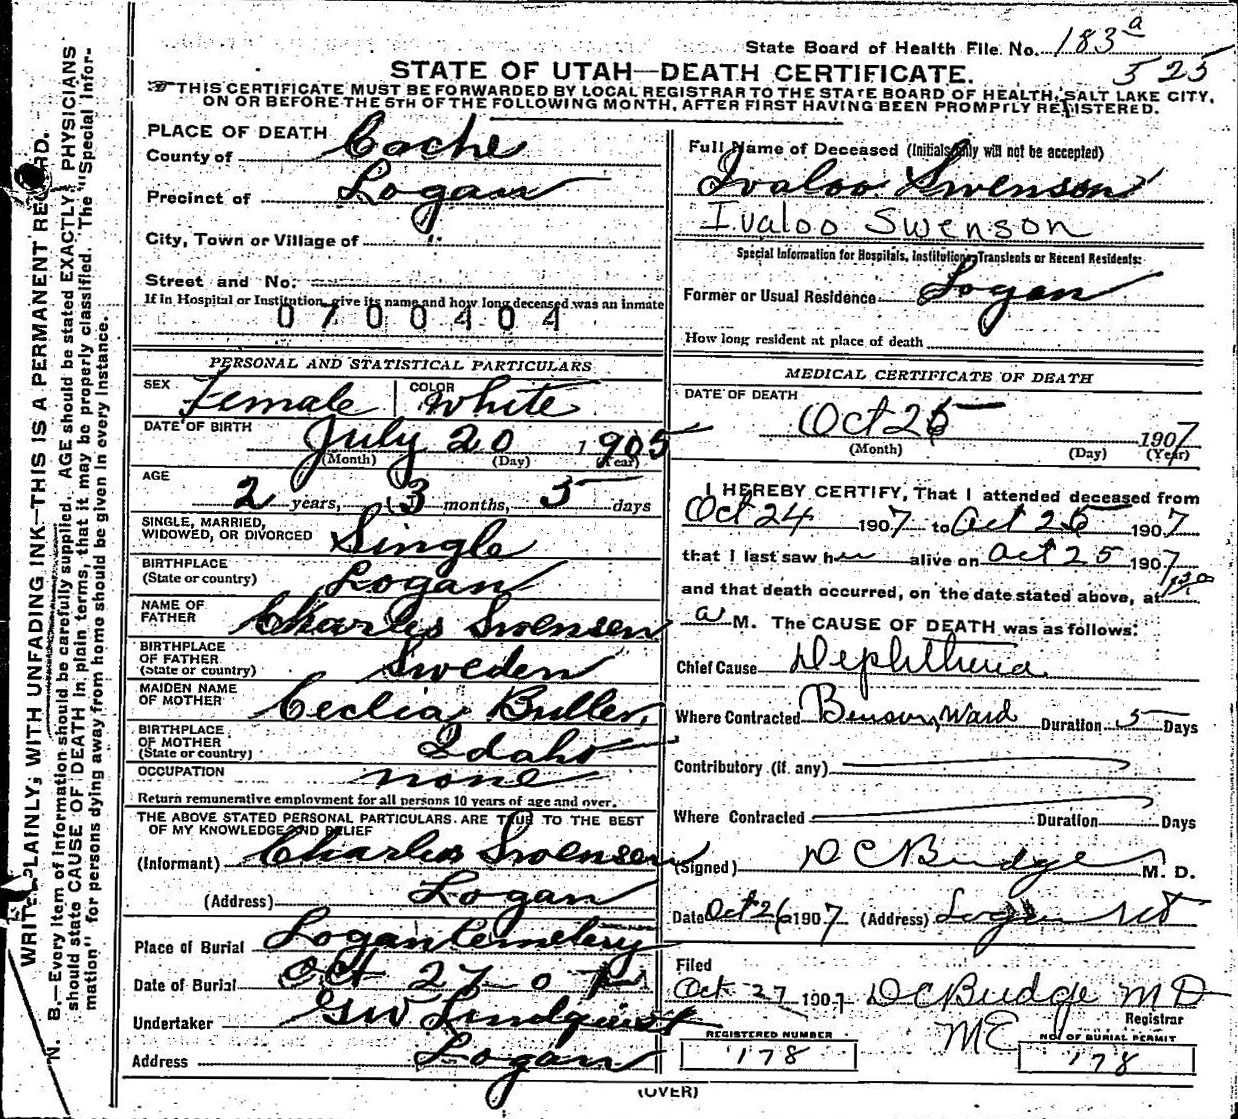 State Board of Health File No. 183 a
525
STATE OF UTAH—DEATH CERTIFICATE.
THIS CERTIFICATE MUST BE FORWARDED BY LOCAL REGISTRAR TO THE STATE BOARD OF HEALTH, SALT LAKE CITY,
ON OR BEFORE THE 5TH OF THE FOLLOWING MONTH, AFTER FIRST HAVING BEEN PROMPTLY REGISTERED.
WRITE PLAINLY, WITH UNFADING INK—THIS IS A PERMANENT RECORD.
N. B.—Every item of information should be carefully supplied. AGE should be stated EXACTLY. PHYSICIANS
should state CAUSE OF DEATH in plain terms, that it may be properly classified. The "Special Infor-
mation" for persons dying away from home should be given in every instance.
PLACE OF DEATH
County of Cache
Precinct of Logan
City, Town or Village of
Street and No.
If in Hospital or Institution, give its name and how long deceased was an inmate
0700404
PERSONAL AND STATISTICAL PARTICULARS
SEX Female COLOR White
DATE OF BIRTH July 20 1905
(Month) (Day) (Year)
AGE
2 years, 3 months, 5 days
SINGLE, MARRIED,
WIDOWED, OR DIVORCED Single
BIRTHPLACE
(State or country) Logan
NAME OF
FATHER Charles Swensen
BIRTHPLACE
OF FATHER
(State or country) Sweden
MAIDEN NAME
OF MOTHER Ceclia Buller
BIRTHPLACE
OF MOTHER
(State or country) Idaho
OCCUPATION none
Return remunerative employment for all persons 10 years of age and over.
THE ABOVE STATED PERSONAL PARTICULARS ARE TRUE TO THE BEST
OF MY KNOWLEDGE AND BELIEF
(Informant) Charles Swensen
(Address) Logan
Place of Burial Logan Cemetery
Date of Burial Oct 27 07
Undertaker GW Lindquist
Address Logan
Full Name of Deceased (Initials only will not be accepted)
Ivaloo Swenson
Ivaloo Swenson
Special Information for Hospitals, Institutions, Transients or Recent Residents:
Former or Usual Residence Logan
How long resident at place of death
MEDICAL CERTIFICATE OF DEATH
DATE OF DEATH
Oct 25 1907
(Month) (Day) (Year)
I HEREBY CERTIFY, That I attended deceased from
Oct 24 1907 to Oct 25 1907
that I last saw her alive on Oct 25 1907
and that death occurred, on the date stated above, at
a M. The CAUSE OF DEATH was as follows:
Chief Cause Diphtheria
Where Contracted Benson Ward Duration 5 Days
Contributory (if any)
Where Contracted Duration Days
(Signed) D C Budge M. D.
Date Oct 26 1907 (Address) Logan Ut
Filed
Oct 27 1907 D C Budge MD
Registrar
ME
REGISTERED NUMBER 178
NO. OF BURIAL PERMIT 178
(OVER)